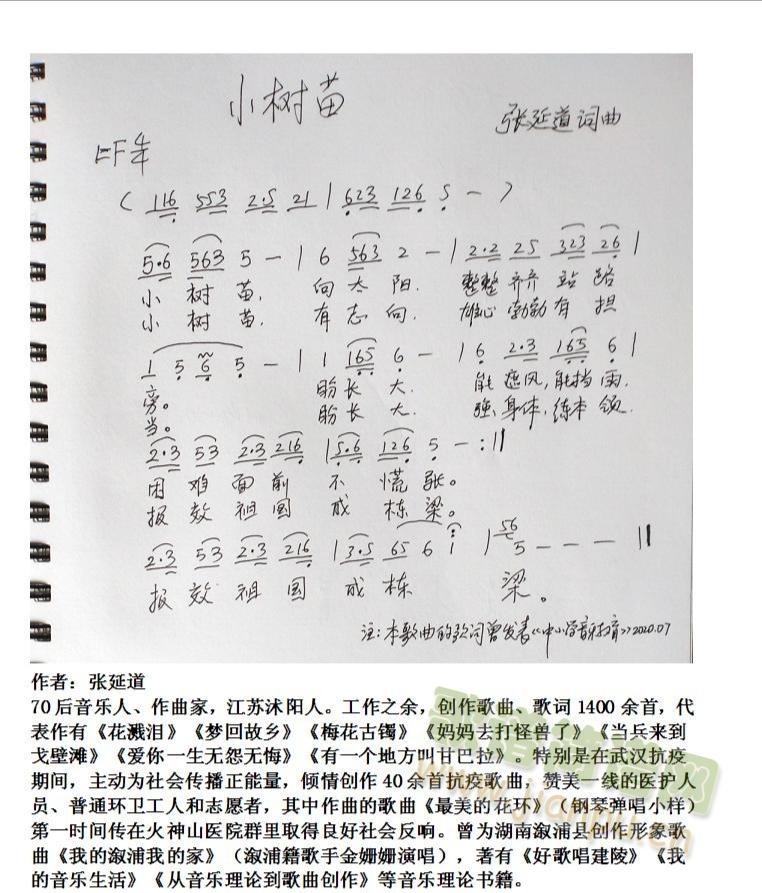 小树苗
张延道词曲
1=F 4/4
( 116 553 2·5 21 | 623 126 5 - )
5·6 563 5 - | 6 563 2 - | 2·2 25 323 26 |
小 树 苗, 向 太 阳. 整整 齐齐 站 路
小 树 苗. 有 志 向. 雄心 勃勃 有 担
1 5 6 5 - | 1 165 6 - | 6 2·3 165 6 |
旁。 盼 长 大. 能 遮风, 能挡 雨.
当。 盼 长 大. 强 身体, 练本 领.
2·3 53 2·3 216 | 5·6 126 5 - :||
困 难 面 前 不 慌 张。
报 效 祖 国 成 栋 梁。
2·3 53 2·3 216 | 3·5 65 6 i | 56 5 - - - ||
报 效 祖 国 成 栋 梁。
注:本歌曲的歌词曾发表《中小学音乐教育》2020.07
作者：张延道
70后音乐人、作曲家，江苏沭阳人。工作之余，创作歌曲、歌词1400余首，代
表作有《花溅泪》《梦回故乡》《梅花古镯》《妈妈去打怪兽了》《当兵来到
戈壁滩》《爱你一生无怨无悔》《有一个地方叫甘巴拉》。特别是在武汉抗疫
期间，主动为社会传播正能量，倾情创作40余首抗疫歌曲，赞美一线的医护人
员、普通环卫工人和志愿者，其中作曲的歌曲《最美的花环》（钢琴弹唱小样）
第一时间传在火神山医院群里取得良好社会反响。曾为湖南溆浦县创作形象歌
曲《我的溆浦我的家》（溆浦籍歌手金姗姗演唱），著有《好歌唱建陵》《我
的音乐生活》《从音乐理论到歌曲创作》等音乐理论书籍。
歌谱简谱网
www.jianpu.cn